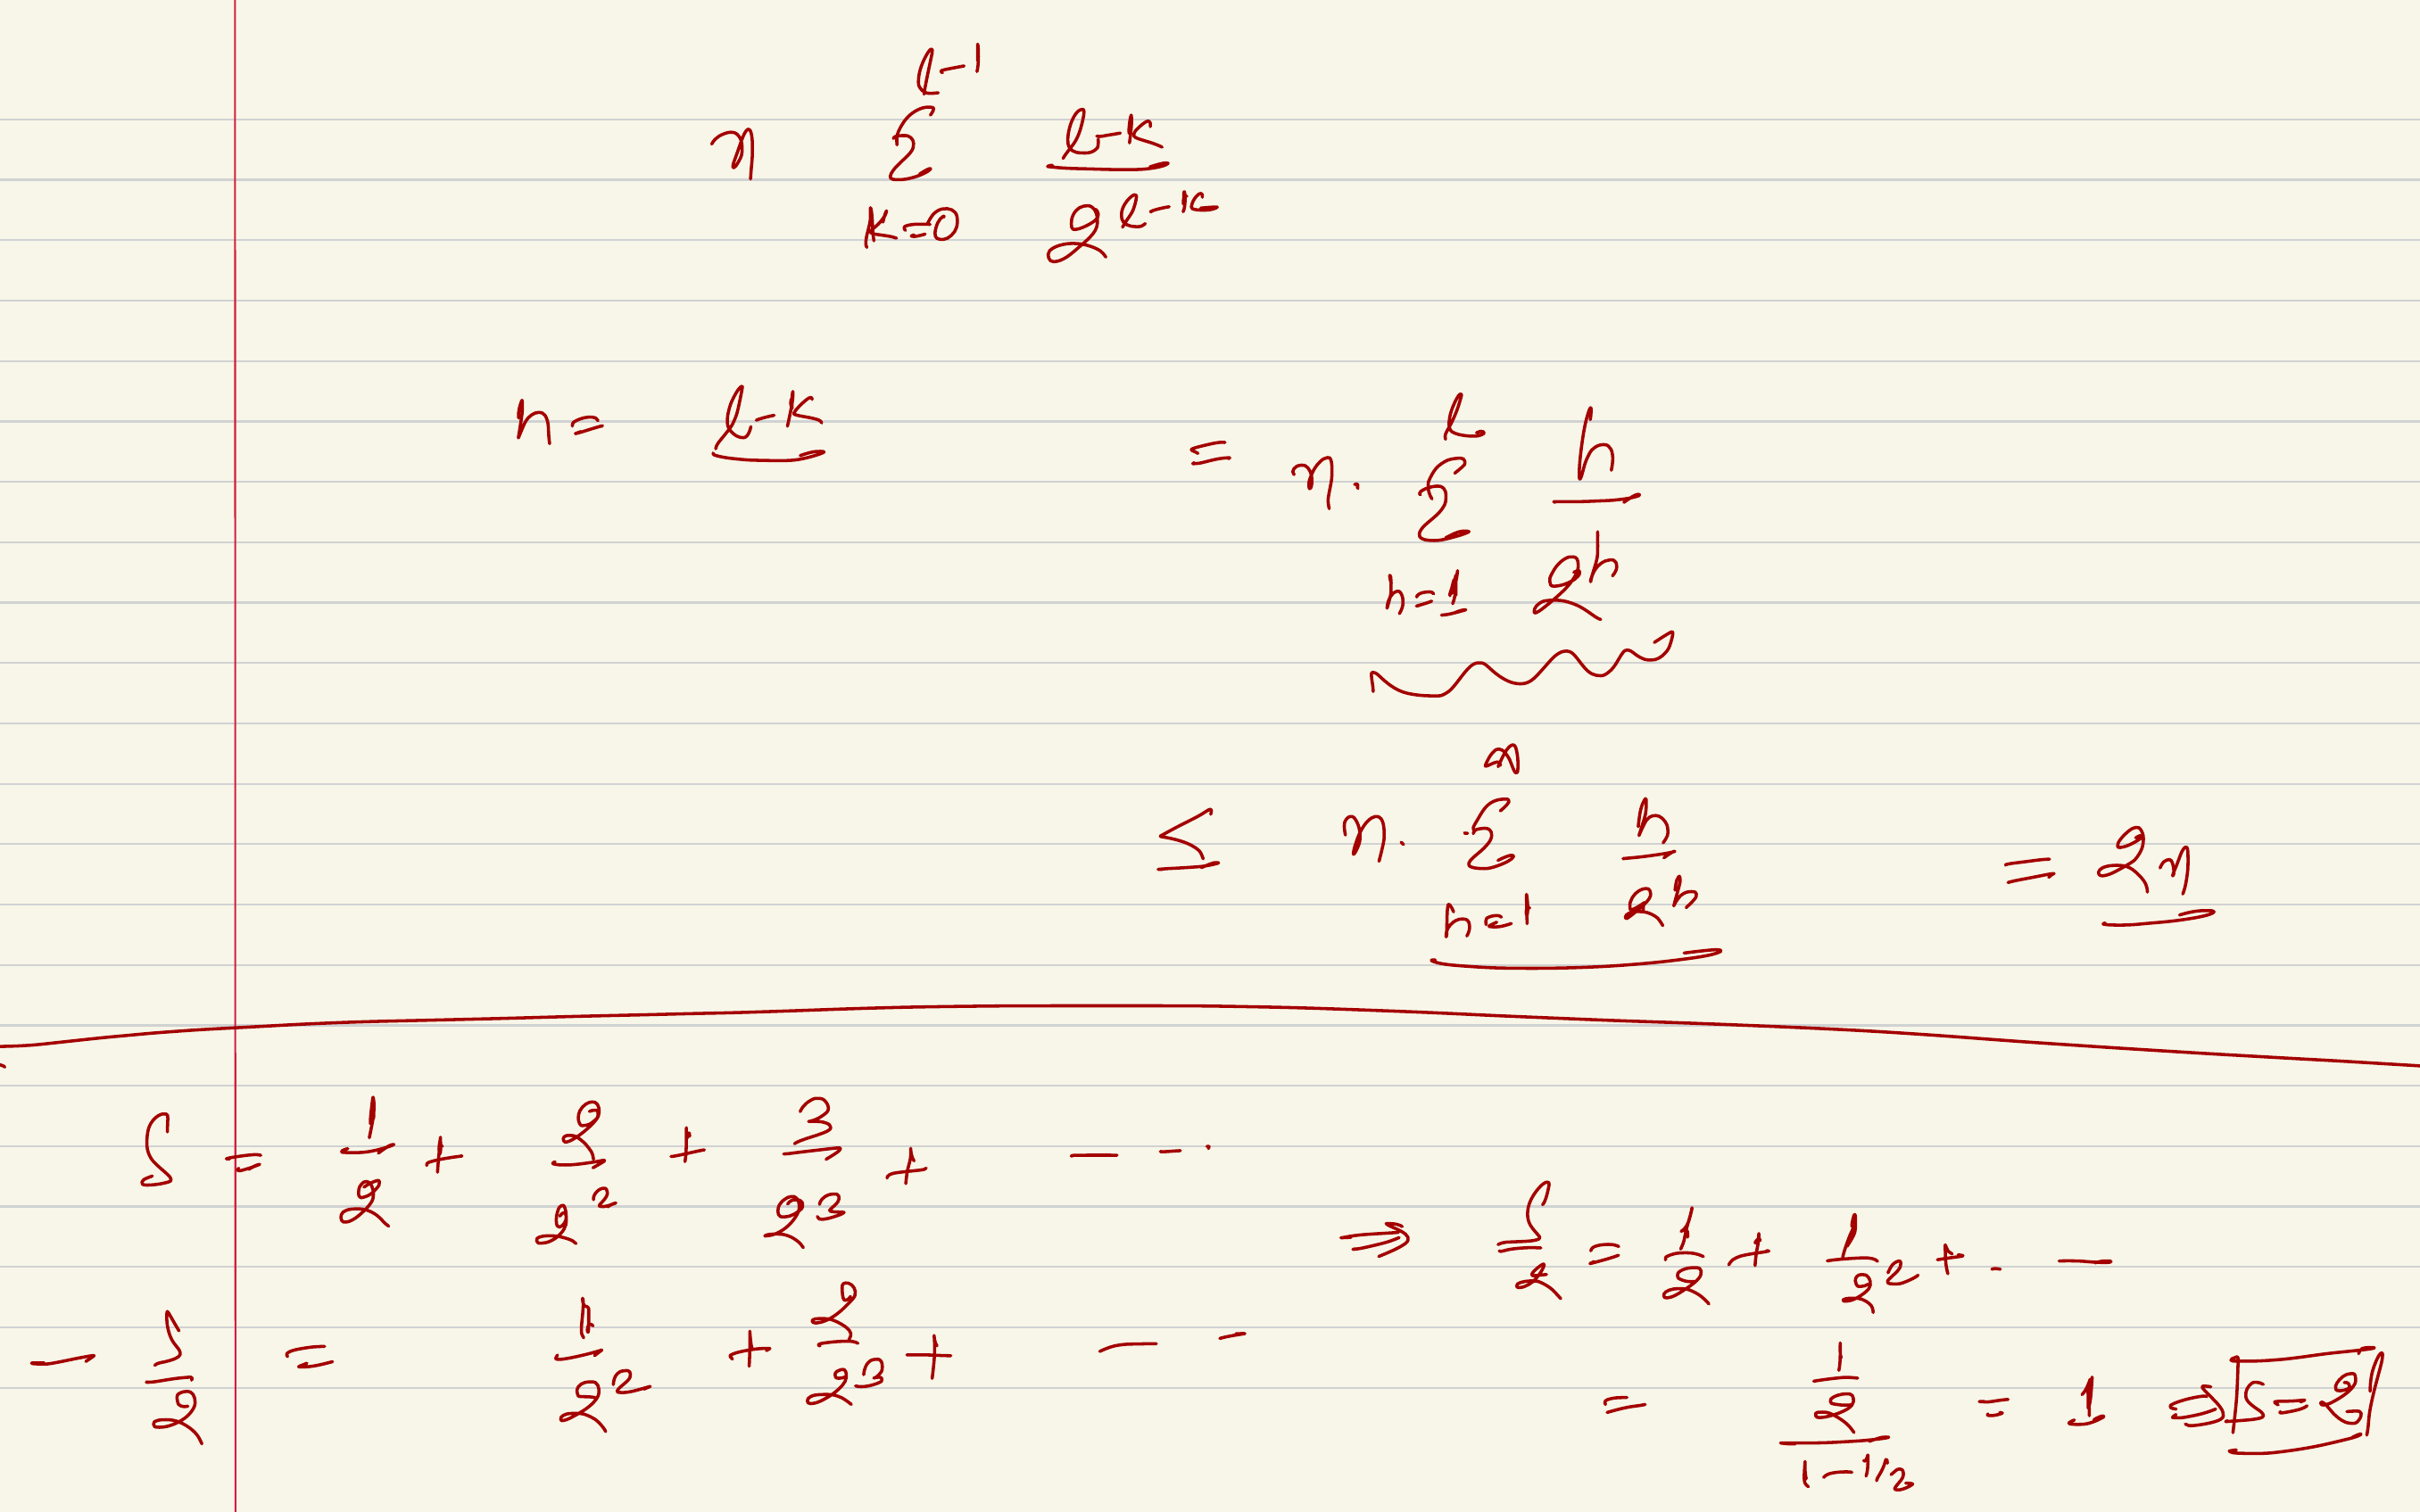 n \sum_{k=0}^{l-1} \frac{l-k}{2^{l-k}}
h = l-k = n. \sum_{h=1}^{l} \frac{h}{2^h}
≤ n. \sum_{h=1}^{∞} \frac{h}{2^h} = 2n
S = \frac{1}{2} + \frac{2}{2^2} + \frac{3}{2^3} + - - .
- \frac{S}{2} = \frac{1}{2^2} + \frac{2}{2^3} + - -
⇒ \frac{S}{2} = \frac{1}{2} + \frac{1}{2^2} + . - -
= \frac{\frac{1}{2}}{1-1/2} = 1 ⇒ S=2